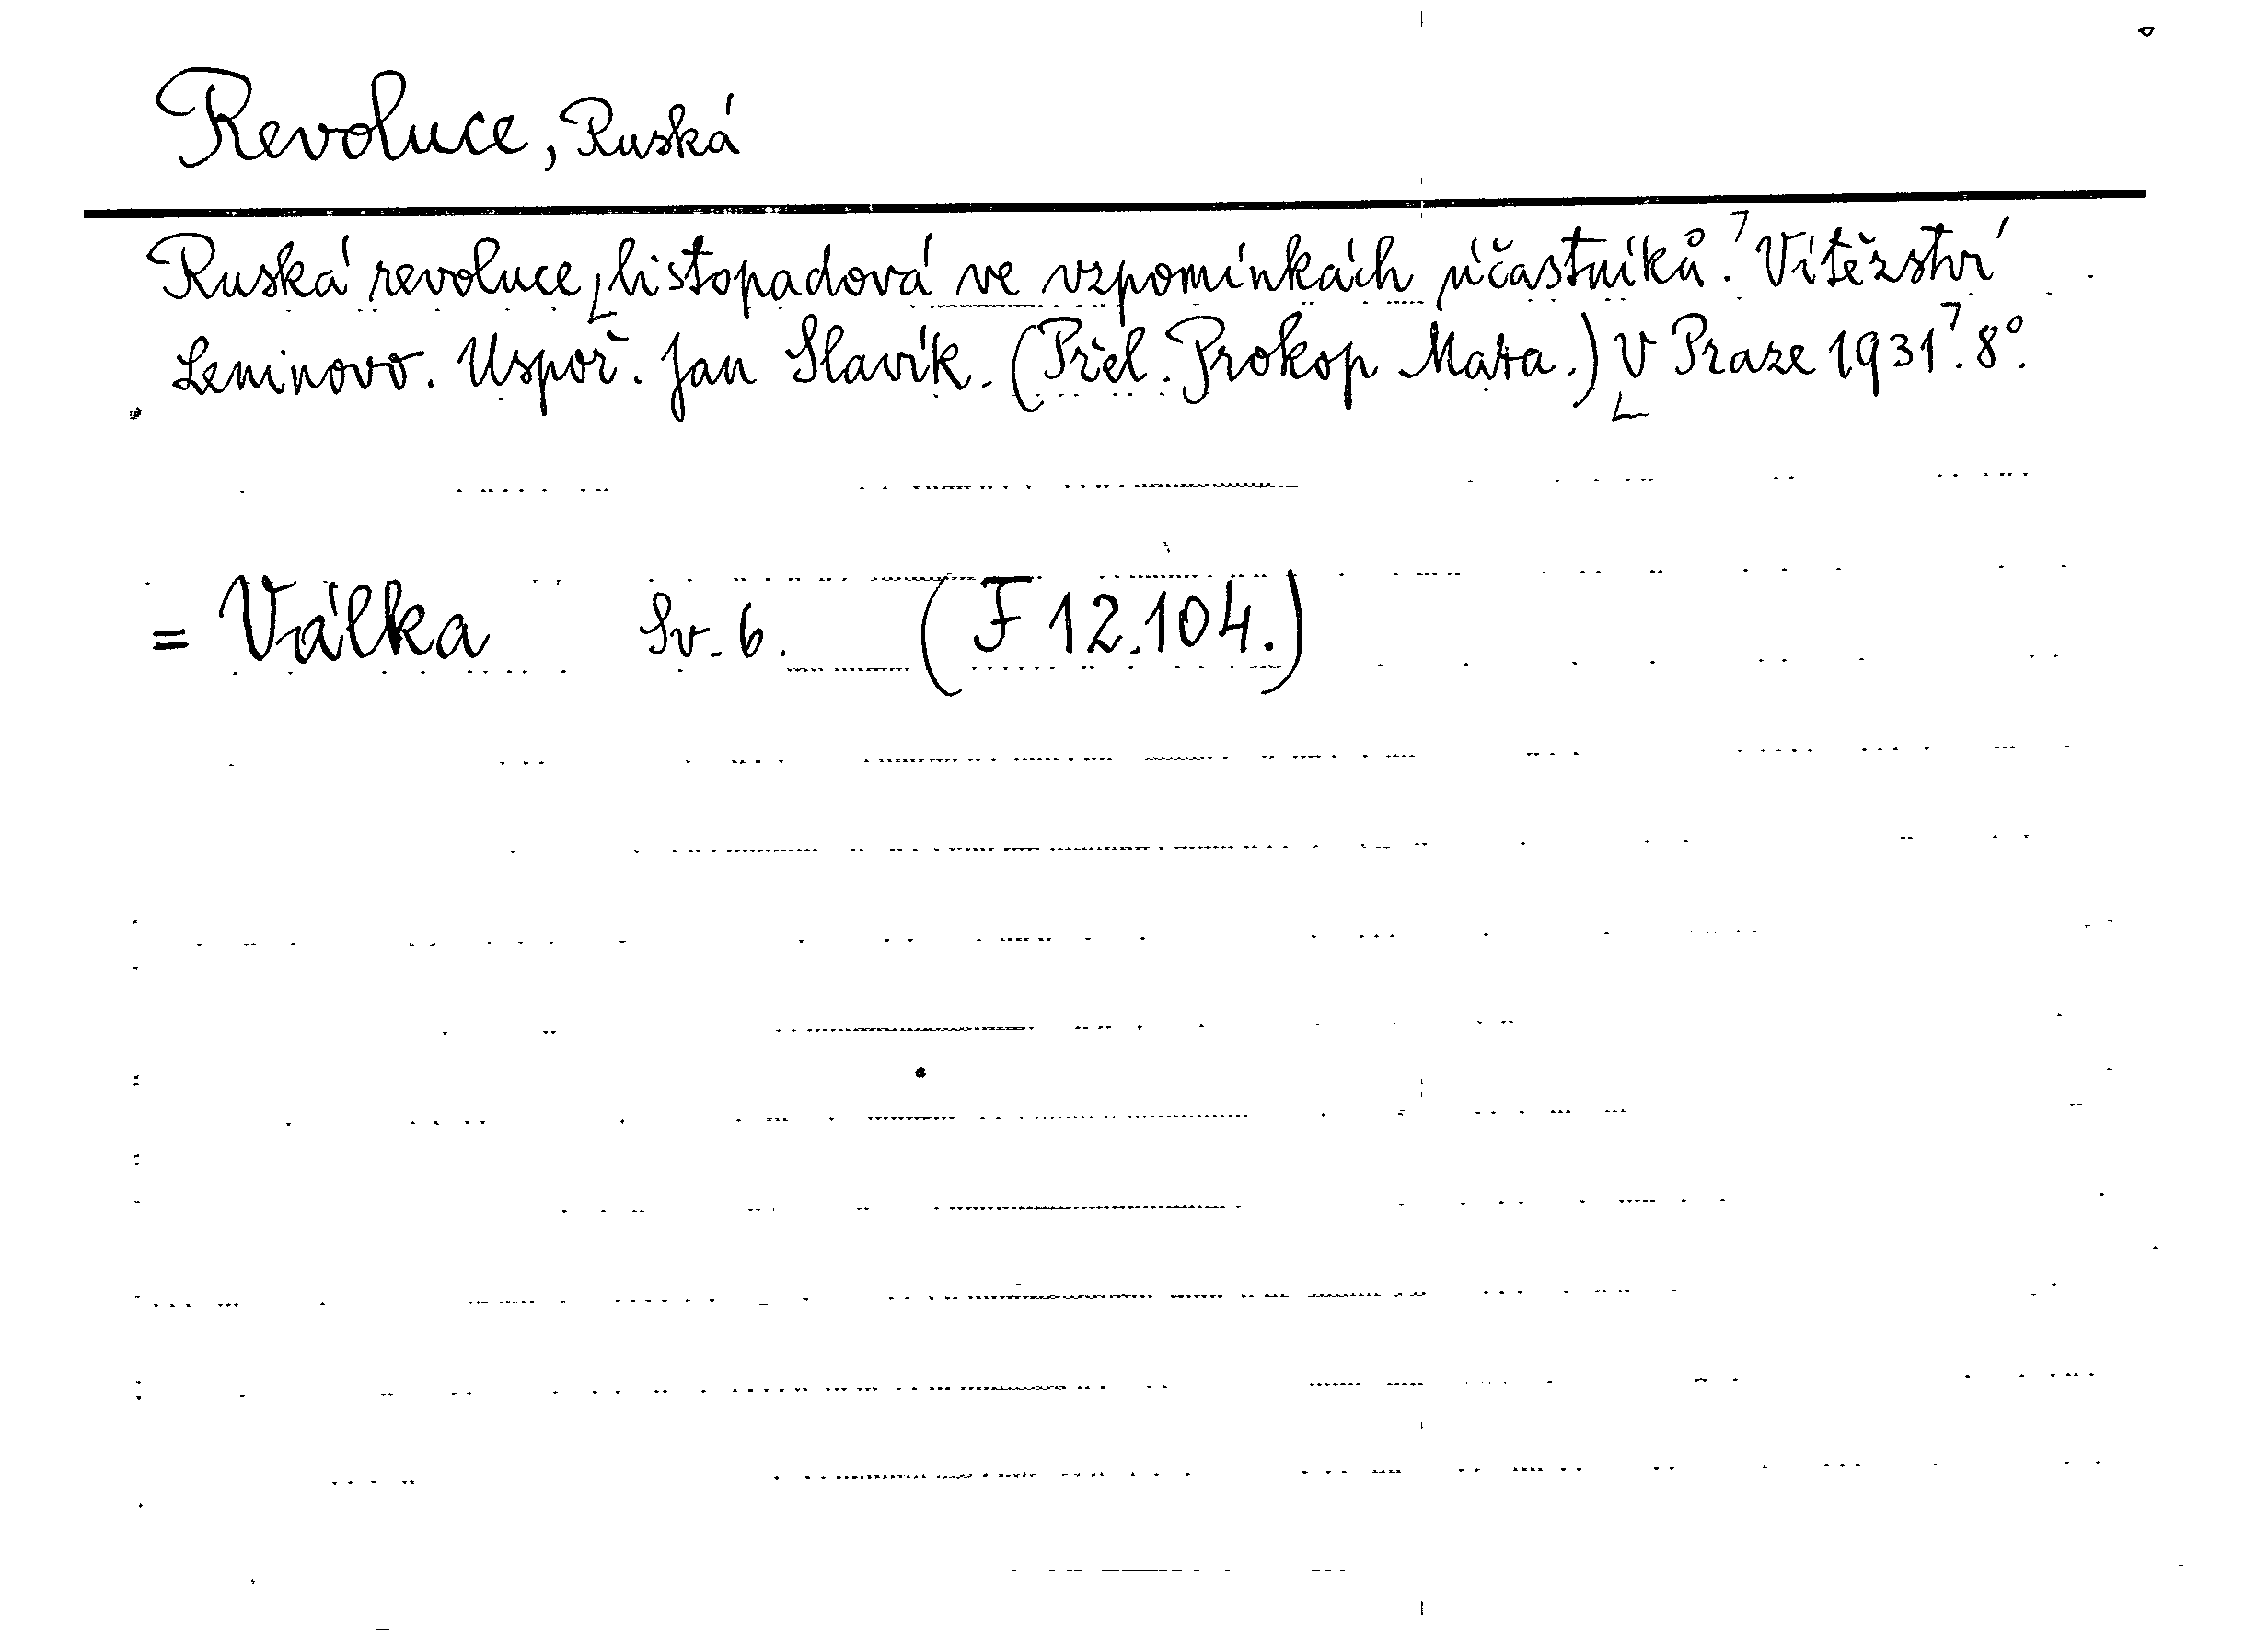 Revoluce, Ruská
Ruská revoluce ⌊listopadová ve vzpomínkách účastníků.⌉ Vítězství
Leninovo. Uspoř. Jan Slavík. (Přel. Prokop Maxa.) ⌊V Praze 1931⌉. 8°.
= Válka Sv. 6. (F 12.104.)